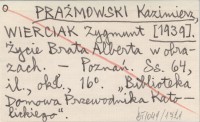 o PRAŻMOWSKI Kazimierz,
WIERCIAK Zygmunt [1939].
Życie Brata Alberta w obra-
zach. – Poznań. Ss. 64,
il., okł., 16°. „Biblioteka
Domowa Przewodnika Kato-
lickiego".